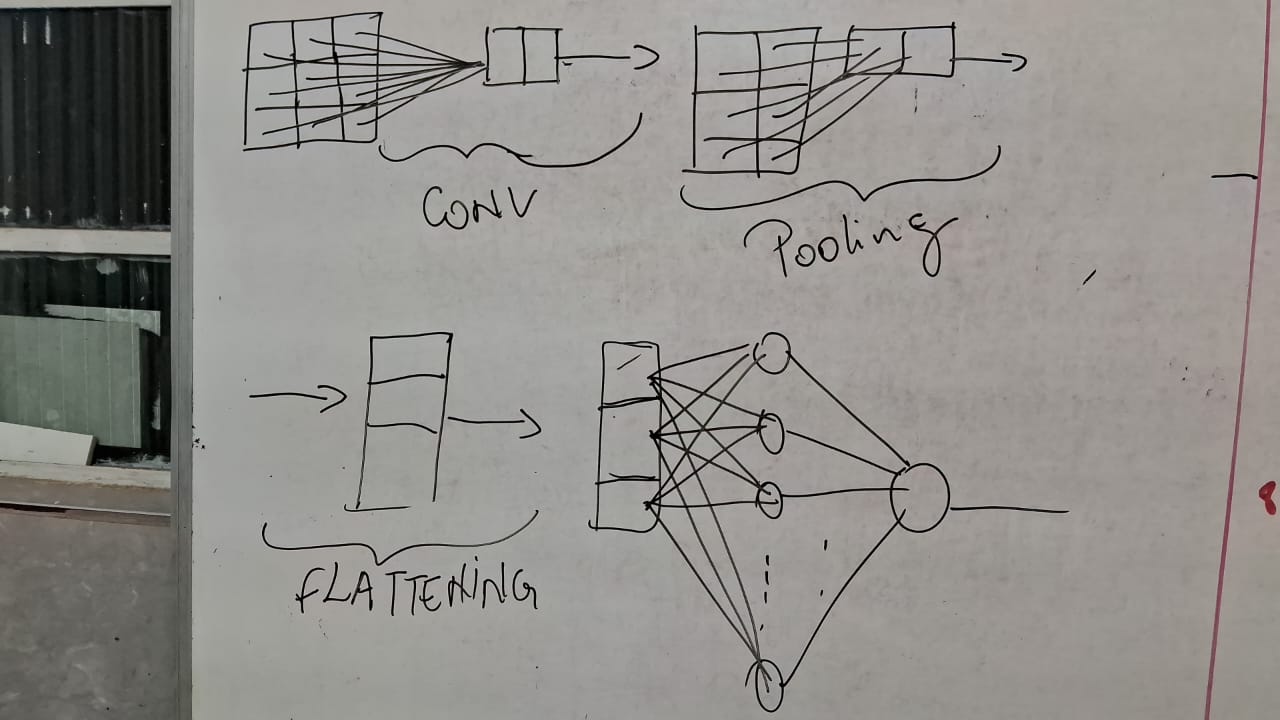 CONV
Pooling
FLATTENING